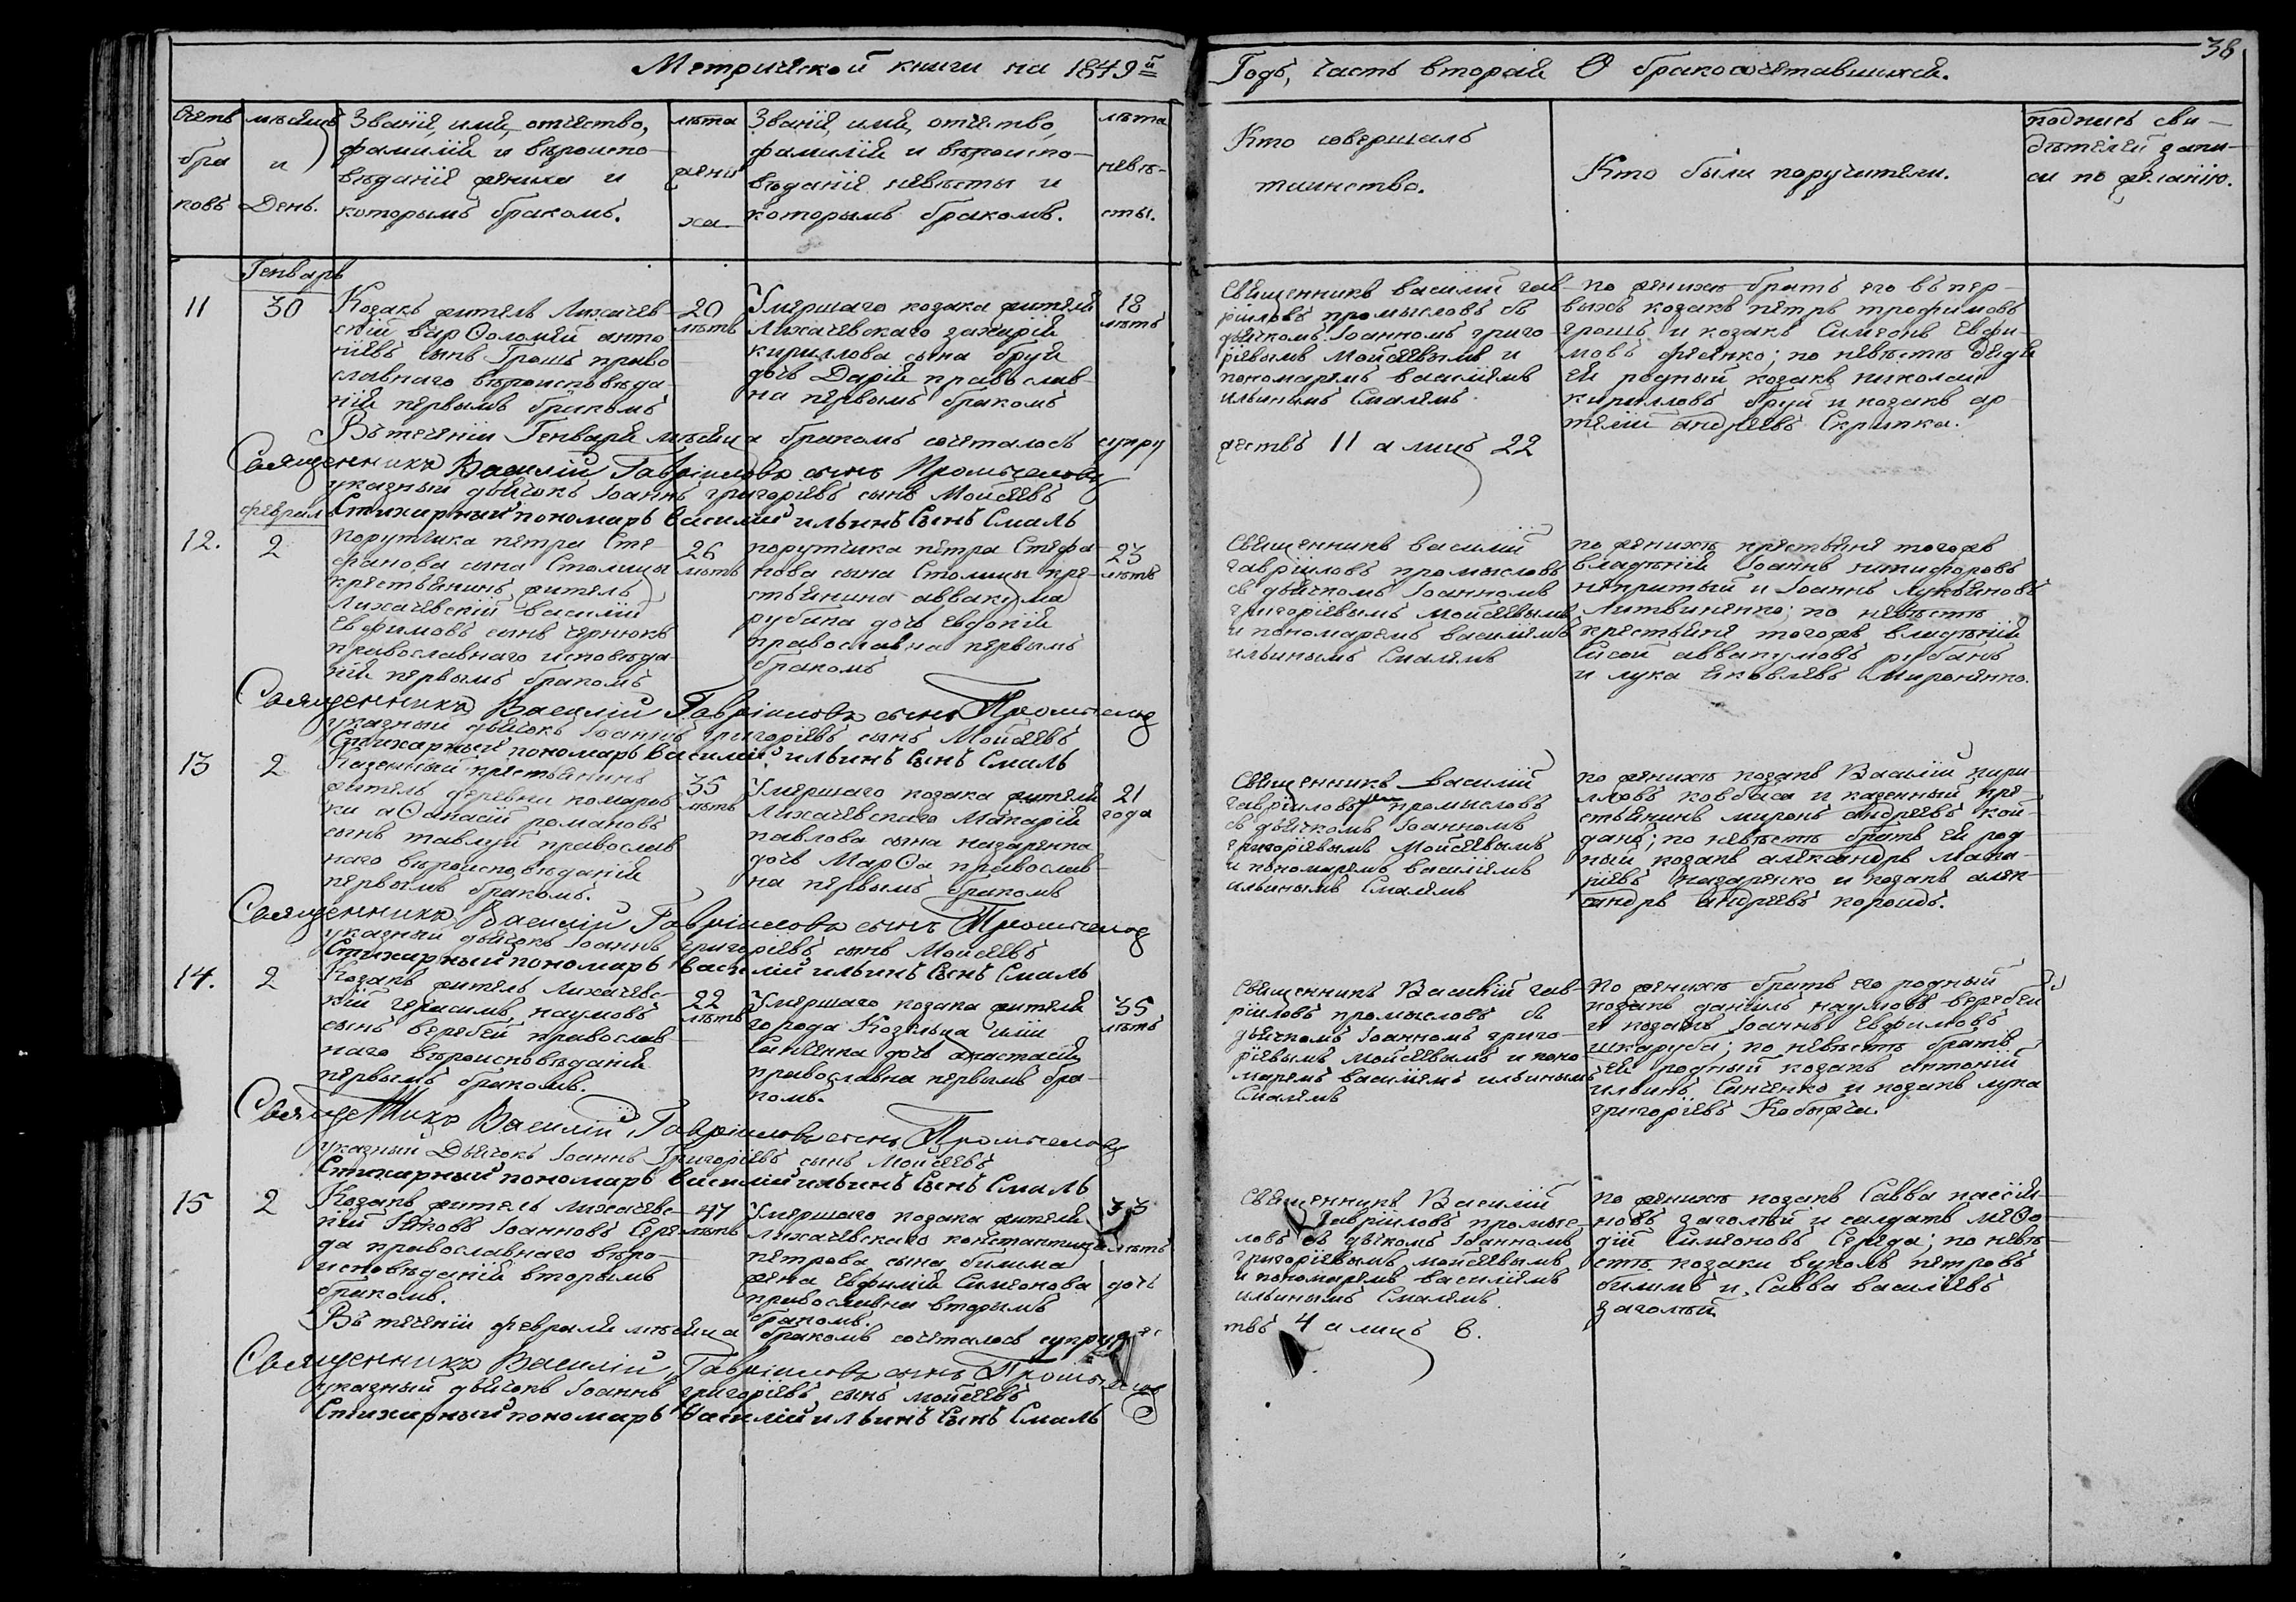 Метрической книги на 1849й
Годъ, часть вторая О бракосочетавшихся.
38
Счетъ бра ковъ
мѣсяцъ и День.
Званіе, имя, отчество,
фамилія и вѣроиспо-
вѣданіе жениха и
которымъ бракомъ.
лѣта
жени
ха.
Званіе, имя, отчество,
фамилія и вѣроиспо-
вѣданіе невѣсты и
которымъ бракомъ.
лѣта
невѣ-
сты.
Кто совершалъ
таинство.
Кто были поручители.
подпись сви-
дѣтелей запи-
си по желанію.
Генварь
11
30
Козакъ житель Лихачев-
скій варѳоломей анто
ніевъ сынъ Грошъ право
славнаго вѣроисповѣда-
нія первымъ бракомъ
20
лѣтъ
Умершаго козака жителя
Лихачевскаго захарія
кириллова сына бруя
дочь Дарія православ-
на первымъ бракомъ
18
лѣтъ
Священникъ василій гав-
ріиловъ промысловъ съ
дьячкомъ Іоанномъ григо-
ріевымъ Мойсѣевымъ и
пономаремъ василіемъ
ильинымъ Смалемъ.
по женихѣ братъ его въ пер-
выхъ козакъ петръ трофимовъ
грошъ и козакъ Симеонъ Евфи-
мовъ фесенко; по невѣстѣ дядя
ея родный козакъ николай
кирилловъ бруй и козакъ ар
темій андреевъ Скрипка.
Въ теченіи Генваря мѣсяца бракомъ сочеталось супру
жествъ 11 а лицъ 22
Священникъ Василій Гавріиловъ сынъ Промысловъ
указный дьячокъ Іоаннъ григоріевъ сынъ Мойсѣевъ
Стихарный пономарь василий ильинъ Сынъ Смаль
февраль
12.
2
порутчика петра Сте-
фанова сына Столицы
крестьянинъ житель
Лихачевскій василій
Евфимовъ сынъ чернюкъ
православнаго исповѣда-
нія первымъ бракомъ
26
лѣтъ
порутчика петра Стефа-
нова сына Столицы кре-
стьянина аввакума
рубана дочь евдокія
православна первымъ
бракомъ
23
лѣтъ
Священникъ василій
гавріиловъ промысловъ
съ дьячкомъ Іоанномъ
григоріевымъ мойсѣевымъ
и пономаремъ василіемъ
ильинымъ Смалемъ
по женихѣ крестьяне тогожъ
владѣнія Іоаннъ никифоровъ
непритый и Іоаннъ Лукьяновъ
Литвиненко; по невѣстѣ
крестьяне тогожъ владѣнія
Сисой аввакумовъ рубанъ
и лука яковлевъ Мироненко.
Священникъ Василій Гавріиловъ сынъ Промысловъ
указный дьячокъ Іоаннъ григоріевъ сынъ Мойсѣевъ
Стихарный пономарь василий ильинъ Сынъ Смаль
13
2
Казенный крестьянинъ
житель деревни комаров
ки аѳанасій романовъ
сынъ тавлуй православ
наго вѣроисповѣданія
первымъ бракомъ.
35
лѣтъ
Умершаго козака жителя
Лихачевскаго Макарія
павлова сына назаренка
дочь Марѳа православ-
на первымъ бракомъ
21
года
Священникъ василій
гавріиловъ промысловъ
съ дьячкомъ Іоанномъ
григоріевымъ Мойсѣевымъ
и пономаремъ василіемъ
ильинымъ Смалемъ
по женихѣ козакъ Василій кири-
лловъ ковбаса и казенный кре-
стьянинъ миронъ андреевъ кой-
данъ; по невѣстѣ братъ ея род
ный козакъ александръ Мака-
ріевъ назаренко и козакъ алек-
сандръ андреевъ короидъ.
Священникъ Василій Гавріиловъ сынъ Промысловъ
указный дьячокъ Іоаннъ григоріевъ сынъ Мойсѣевъ
Стихарный пономарь василий ильинъ Сынъ Смаль
14.
2
Козакъ житель Лихачевс-
кій герасимъ наумовъ
сынъ веребей православ-
наго вѣроисповѣданія
первымъ бракомъ.
22
лѣтъ
Умершаго козака жителя
города Козельца иліи
Санченка дочь анастасія
православна первымъ бра-
комъ.
35
лѣтъ
Священникъ Василій гав-
ріиловъ промысловъ съ
дьячкомъ Іоанномъ григо-
ріевымъ мойсѣевымъ и поно-
маремъ василіемъ ильинымъ
Смалемъ
По женихѣ братъ его родный
козакъ даніилъ наумовъ веребей
и козакъ Іоаннъ Евфимовъ
шкаруба; по невѣстѣ братъ
ея родный козакъ антоній
ильинъ Санченко и козакъ лука
григоріевъ Кобыжча.
Священникъ Василій Гавріиловъ сынъ Промысловъ
указный Дьячокъ Іоаннъ Григоріевъ сынъ Мойсѣевъ
Стихарный пономарь василий ильинъ Сынъ Смаль
15
2
Козакъ житель лихачевс-
кій Яковъ Іоанновъ Сере-
да православнаго вѣро-
исповѣданія вторымъ
бракомъ.
47
лѣтъ
Умершаго козака жителя
лихачевскаго константина
петрова сына билима
жена Евфимія Симеонова дочь
православна вторымъ
бракомъ.
33
лѣтъ
Священникъ Василій
Гавріиловъ промыс-
ловъ съ дьячкомъ Іоанномъ
григоріевымъ мойсѣевымъ
и пономаремъ василіемъ
ильинымъ Смалемъ
по женихѣ козакъ Савва кассія-
новъ заголтый и солдатъ меѳо-
дій Симеоновъ Середа; по невѣ-
стѣ козаки вуколъ петровъ
билимъ и Савва василіевъ
заголтый
Въ теченіи февраля мѣсяца бракомъ сочеталось супружес
твъ 4 а лицъ 8.
Священникъ Василій Гавріиловъ сынъ Промысловъ
указный дьячокъ Іоаннъ григоріевъ сынъ мойсѣевъ
Стихарный пономарь василий ильинъ Сынъ Смаль